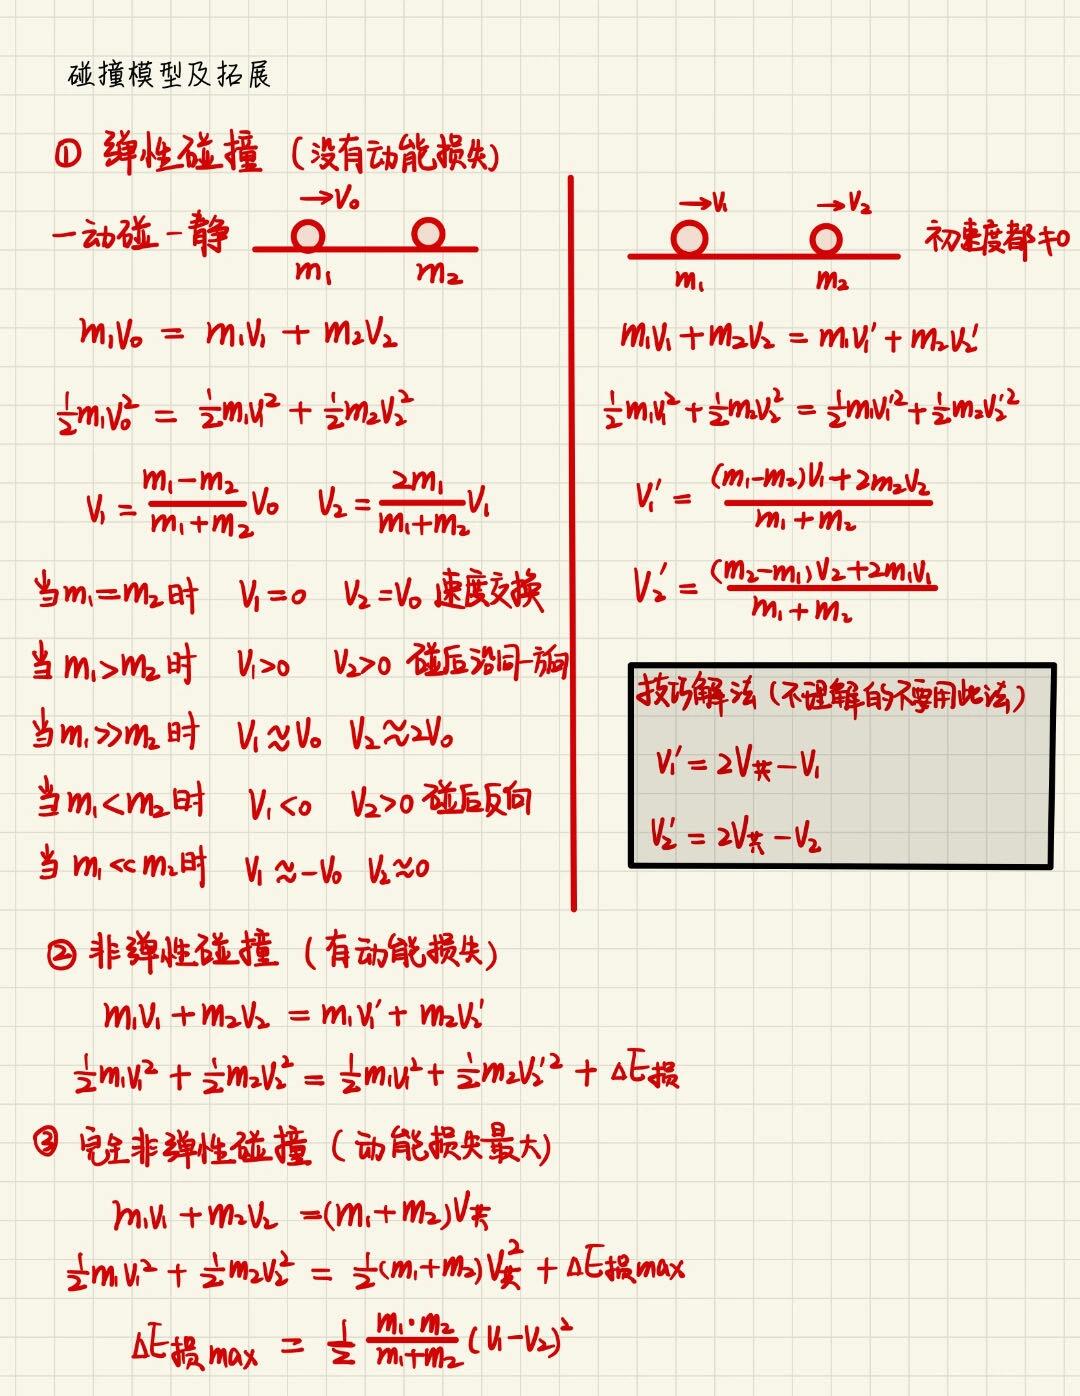 碰撞模型及拓展
① 弹性碰撞 (没有动能损失)
一动碰一静
→V₀
m₁ m₂
m₁V₀ = m₁V₁ + m₂V₂
½m₁V₀² = ½m₁V₁² + ½m₂V₂²
V₁ = (m₁-m₂)/(m₁+m₂) V₀ V₂ = 2m₁/(m₁+m₂) V₁
当m₁=m₂时 V₁=0 V₂=V₀ 速度交换
当m₁>m₂时 V₁>0 V₂>0 碰后沿同一方向
当m₁≫m₂时 V₁≈V₀ V₂≈2V₀
当m₁<m₂时 V₁<0 V₂>0 碰后反向
当m₁≪m₂时 V₁≈-V₀ V₂≈0
→V₁ →V₂
初速度都≠0
m₁ m₂
m₁V₁+m₂V₂ = m₁V₁′+m₂V₂′
½m₁V₁²+½m₂V₂² = ½m₁V₁′²+½m₂V₂′²
V₁′ = ((m₁-m₂)V₁+2m₂V₂)/(m₁+m₂)
V₂′ = ((m₂-m₁)V₂+2m₁V₁)/(m₁+m₂)
技巧解法(不理解的不要用此法)
V₁′ = 2V共-V₁
V₂′ = 2V共-V₂
② 非弹性碰撞 (有动能损失)
m₁V₁+m₂V₂ = m₁V₁′+m₂V₂′
½m₁V₁² + ½m₂V₂² = ½m₁V₁² + ½m₂V₂′² + ΔE损
③ 完全非弹性碰撞 (动能损失最大)
m₁V₁+m₂V₂ =(m₁+m₂)V共
½m₁V₁² + ½m₂V₂² = ½(m₁+m₂)V共² + ΔE损max
ΔE损max = ½ (m₁·m₂)/(m₁+m₂) (V₁-V₂)²